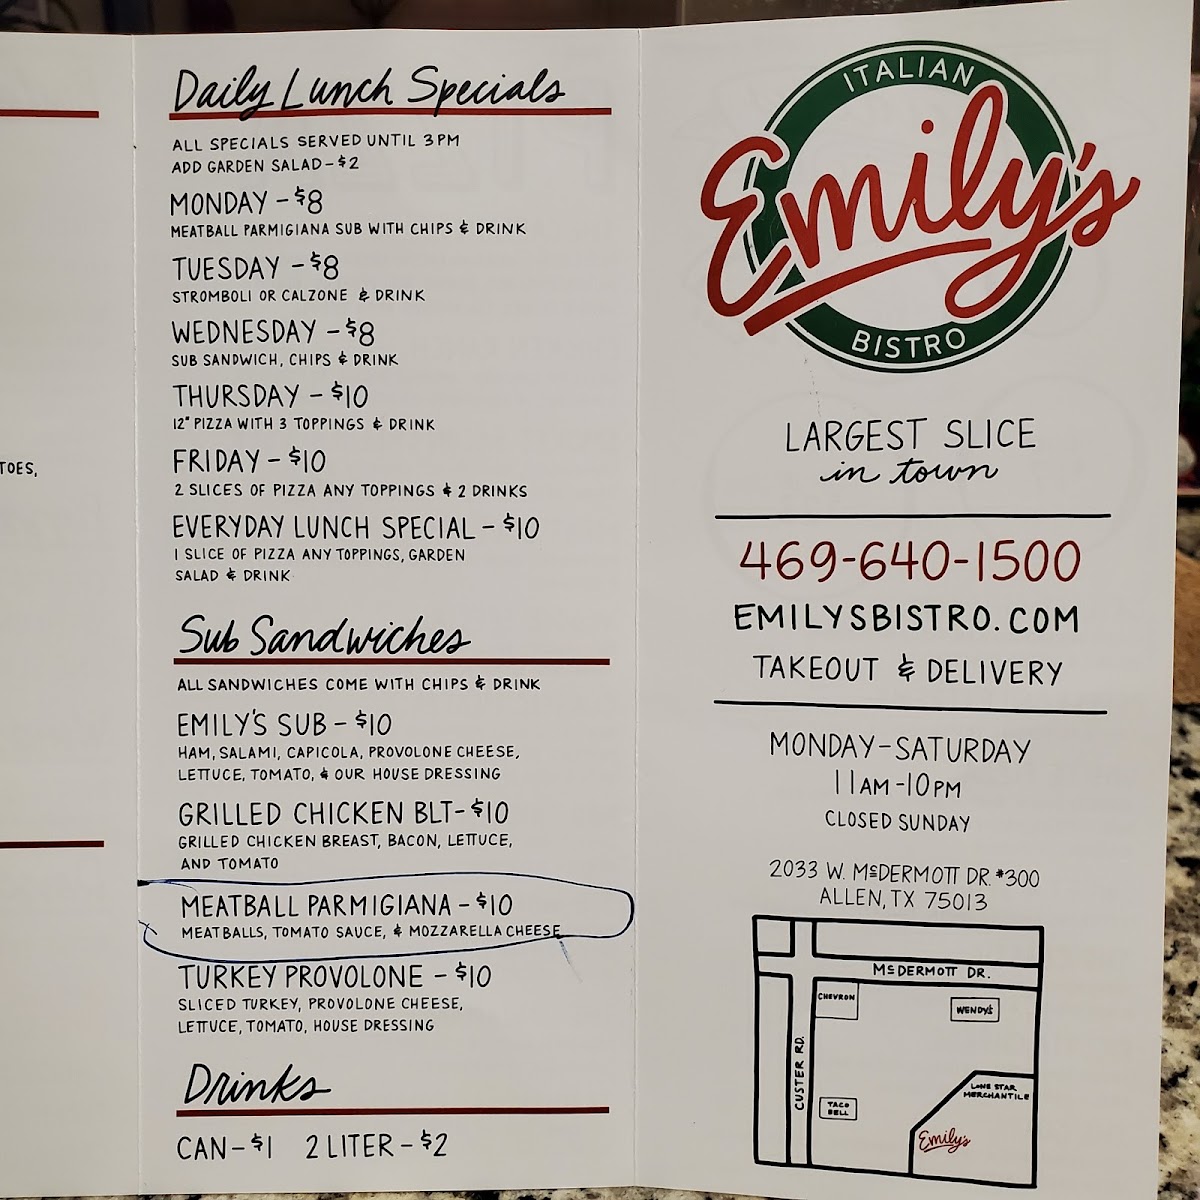 TOES,
Daily Lunch Specials
ALL SPECIALS SERVED UNTIL 3PM
ADD GARDEN SALAD - $2
MONDAY - $8
MEATBALL PARMIGIANA SUB WITH CHIPS & DRINK
TUESDAY - $8
STROMBOLI OR CALZONE & DRINK
WEDNESDAY - $8
SUB SANDWICH, CHIPS & DRINK
THURSDAY - $10
12" PIZZA WITH 3 TOPPINGS & DRINK
FRIDAY - $10
2 SLICES OF PIZZA ANY TOPPINGS & 2 DRINKS
EVERYDAY LUNCH SPECIAL - $10
1 SLICE OF PIZZA ANY TOPPINGS, GARDEN
SALAD & DRINK
Sub Sandwiches
ALL SANDWICHES COME WITH CHIPS & DRINK
EMILY'S SUB - $10
HAM, SALAMI, CAPICOLA, PROVOLONE CHEESE,
LETTUCE, TOMATO, & OUR HOUSE DRESSING
GRILLED CHICKEN BLT- $10
GRILLED CHICKEN BREAST, BACON, LETTUCE,
AND TOMATO
MEATBALL PARMIGIANA - $10
MEATBALLS, TOMATO SAUCE, & MOZZARELLA CHEESE
TURKEY PROVOLONE - $10
SLICED TURKEY, PROVOLONE CHEESE,
LETTUCE, TOMATO, HOUSE DRESSING
Drinks
CAN - $1 2 LITER - $2
ITALIAN
Emily's
BISTRO
LARGEST SLICE
in town
469-640-1500
EMILYSBISTRO.COM
TAKEOUT & DELIVERY
MONDAY-SATURDAY
11AM-10PM
CLOSED SUNDAY
2033 W. McDERMOTT DR. #300
ALLEN, TX 75013
McDERMOTT DR.
CHEVRON
WENDY'S
CUSTER RD.
LONE STAR
MERCHANTILE
TACO
BELL
Emily's